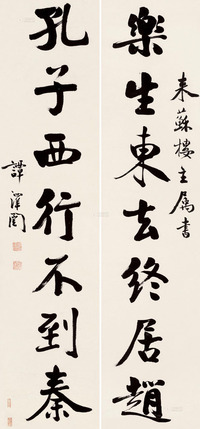 來蘇樓主屬書
樂生東去終居趙
孔子西行不到秦
譚澤闓